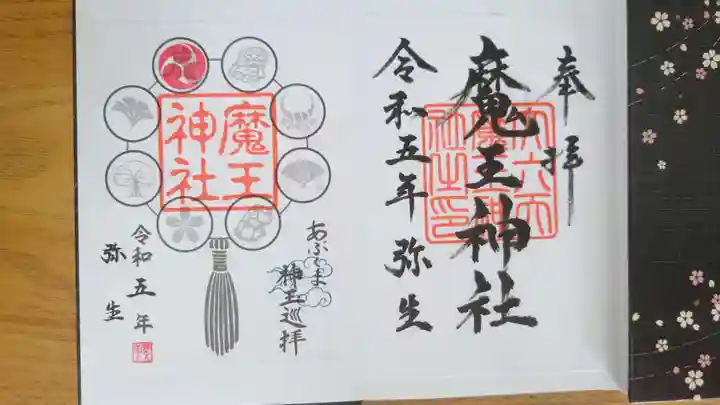 奉拝
魔王神社
令和五年弥生
魔王
神社
あぶくま
神玉巡拝
令和五年
弥生